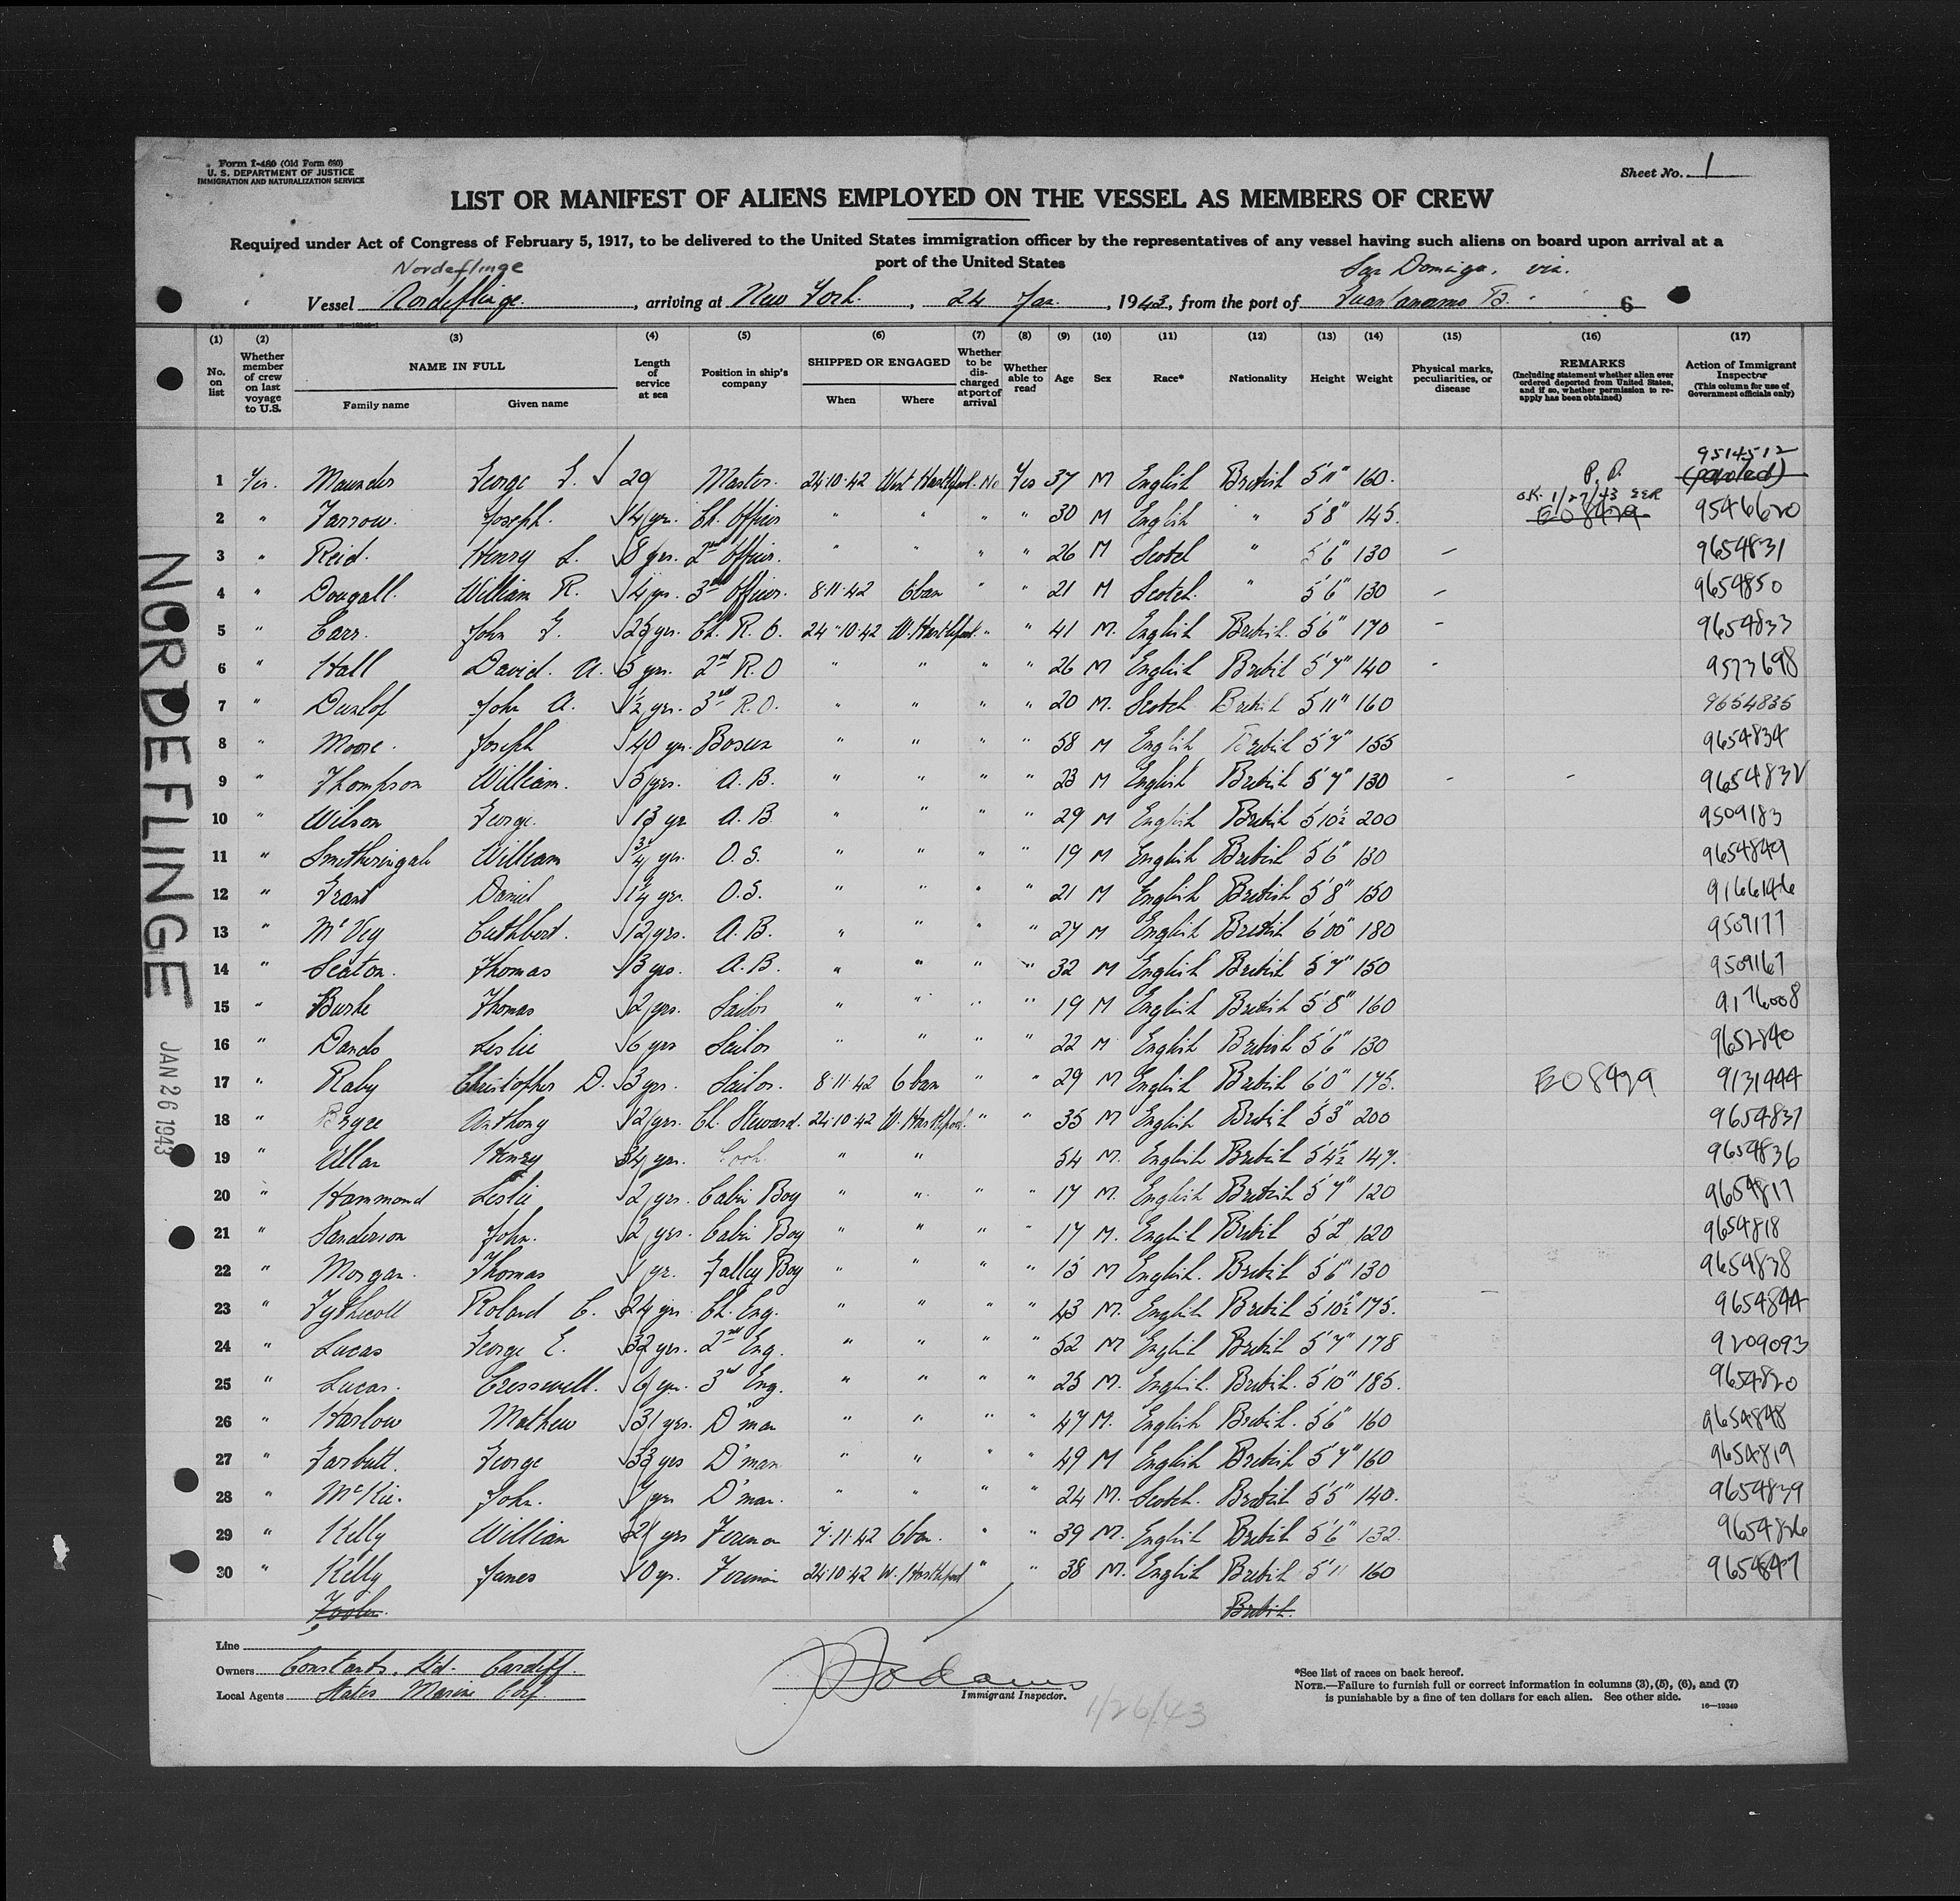 Form I-480 (Old Form 680)
U. S. DEPARTMENT OF JUSTICE
IMMIGRATION AND NATURALIZATION SERVICE
Sheet No. 1
LIST OR MANIFEST OF ALIENS EMPLOYED ON THE VESSEL AS MEMBERS OF CREW
Required under Act of Congress of February 5, 1917, to be delivered to the United States immigration officer by the representatives of any vessel having such aliens on board upon arrival at a
port of the United States
Nordeflinge San Domingo. via.
Vessel Nordeflinge, arriving at New York, 24 Jan, 1943, from the port of Guantanamo B. 6
(1) No. on list
(2) Whether member of crew on last voyage to U.S.
(3) NAME IN FULL Family name Given name
(4) Length of service at sea
(5) Position in ship's company
(6) SHIPPED OR ENGAGED When Where
(7) Whether to be discharged at port of arrival
(8) Whether able to read
(9) Age
(10) Sex
(11) Race*
(12) Nationality
(13) Height
(14) Weight
(15) Physical marks, peculiarities, or disease
(16) REMARKS (Including statement whether alien ever ordered deported from United States, and if so, whether permission to re-apply has been obtained)
(17) Action of Immigrant Inspector (This column for use of Government officials only)
1 Yes. Maunder George 29 Master. 24.10.42 West Hartlepool. No Yes 37 M English British 5'11" 160. P.P. 9514512 (paroled)
2 " Farrow. Joseph. 14 yrs. Ch. Officer " " " " 30 M English " 5'8" 145. OK. 1/27/43 EO 8429 9546620
3 " Reid. Henry L. 8 yrs. 2nd Officer. " " " " 26 M Scotch " 5'6" 130 9654831
4 " Dougall. William R. 4 yrs. 3rd Officer. 8.11.42 Oban " " 21 M Scotch. " 5'6" 130 9654850
5 " Carr. John 25 yrs. Ch. R.O. 24.10.42 W. Hartlepool. " " 41 M. English British. 5'6" 170 9654833
6 " Hall David. A. 5 yrs. 2nd R.O " " " " 26 M English British 5'7" 140 9573698
7 " Dunlop John A. 1½ yrs. 3rd R.O. " " " " 20 M. Scotch British 5'11" 160 9654835
8 " Moore. Joseph 40 yrs. Bosun " " " " 58 M English British 5'7" 155 9654834
9 " Thompson William. 5 yrs. A.B. " " " " 23 M English British 5'7" 130 9654832
10 " Wilson George. 13 yrs A.B. " " " " 29 M English British 5'10½ 200 9509183
11 " Smitheringale William ¾ yrs. O.S. " " " " 19 M English British 5'6" 130 9654849
12 " Grant Daniel 1¼ yrs. O.S. " " " " 21 M English British 5'8" 150 9166146
13 " McVey Cuthbert. 12 yrs. A.B. " " " " 27 M English British 6'00" 180 9509177
14 " Seaton. Thomas 13 yrs. A.B. " " " " 32 M English British 5'7" 150 9509167
15 " Burke Thomas 2 yrs. Sailor " " " " 19 M English British 5'8" 160 9176008
16 " Dando Leslie 6 yrs Sailor " " " " 22 M English British 5'6" 130 9652840
17 " Raby Christopher D. 3 yrs. Sailor. 8.11.42 Oban " " 29 M English British 6'0" 175. EO 8429 9131444
18 " Bryce Anthony 12 yrs. Ch. Steward. 24.10.42 W. Hartlepool. " " 35 M English British 5'3" 200 9654837
19 " Allan Henry 34 yrs. Cook. " " 54 M. English British 5'4½ 147. 9654836
20 " Hammond Leslie 2 yrs. Cabin Boy " " " " 17 M. English British 5'7" 120 9654817
21 " Sanderson John. 2 yrs. Cabin Boy " " " " 17 M. English British 5'2" 120 9654818
22 " Morgan. Thomas 1 yr. Galley Boy " " " " 15 M English. British 5'6" 130 9654838
23 " Tythcott Roland C. 24 yrs Ch. Eng. " " " " 43 M. English British 5'10½" 175. 9654844
24 " Lucas George E. 32 yrs. 2nd Eng. " " " " 52 M English British 5'7" 178 9209093
25 " Lucas. Cresswell. 6 yrs. 3rd Eng. " " " " 25 M. English. British. 5'10" 185. 9654820
26 " Harlow Mathew 31 yrs. D'man " " " " 47 M. English British. 5'6" 160 9654848
27 " Garbutt. George 33 yrs D'man " " " " 49 M English British 5'7" 160 9654819
28 " McKie. John. 7 yrs D'man. " " " " 24 M. Scotch. British 5'5" 140. 9654839
29 " Kelly William 21 yrs Fireman 7.11.42 Oban. " " 39 M. English British 5'6" 132. 9654826
30 " Kelly James 10 yr. Fireman 24.10.42 W. Hartlepool " " 38 M. English British 5'11 160 9654847
British.
NORDEFLINGE
JAN 26 1943
Line
Owners Constants. Ltd. Cardiff.
Local Agents States Marine Corp.
Immigrant Inspector.
1/26/43
*See list of races on back hereof.
NOTE.—Failure to furnish full or correct information in columns (3), (5), (6), and (7)
is punishable by a fine of ten dollars for each alien. See other side.
16—19349